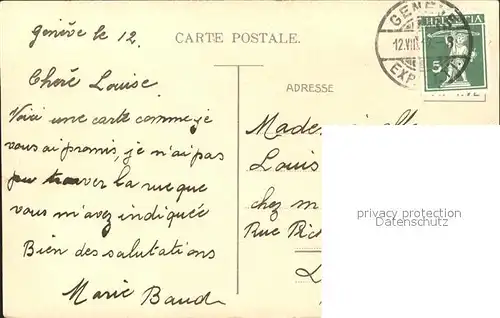 Genève le 12.
CARTE POSTALE.
GENÈVE
12.VIII.1
EXP
HELVETIA
5
Cheré Louise
ADRESSE
Voici une carte comme je
vous ai promis, je n'ai pas
pu trouver la rue que
vous m'avez indiquée
Bien des salutations
Marie Baud
Made
Louis
chez m
Rue
L
privacy protection
Datenschutz